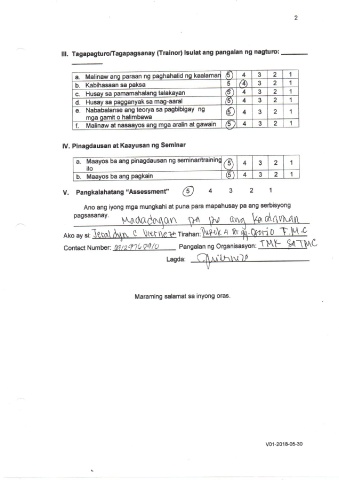 2
III. Tagapagturo/Tagapagsanay (Trainor) Isulat ang pangalan ng nagturo: ______
a. Malinaw ang paraan ng paghahalid ng kaalaman 5 4 3 2 1
b. Kabihasaan sa paksa 5 4 3 2 1
c. Husay sa pamamahalang talakayan 5 4 3 2 1
d. Husay sa pagganyak sa mag-aaral 5 4 3 2 1
e. Nababalanse ang teorya sa pagbibigay ng 5 4 3 2 1
mga gamit o halimbawa
f. Malinaw at nasaayos ang mga aralin at gawain 5 4 3 2 1
IV. Pinagdausan at Kaayusan ng Seminar
a. Maayos ba ang pinagdausan ng seminar/training 5 4 3 2 1
ito
b. Maayos ba ang pagkain 5 4 3 2 1
V. Pangkalahatang "Assessment" 5 4 3 2 1
Ano ang iyong mga mungkahi at puna para mapahusay pa ang serbisyong
pagsasanay. Madadagan pa po ang kaalaman
Ako ay si: C Tirahan: T.M.C
Contact Number: Pangalan ng Organisasyon: TMK SATMC
Lagda:
Maraming salamat sa inyong oras.
V01-2018-05-30